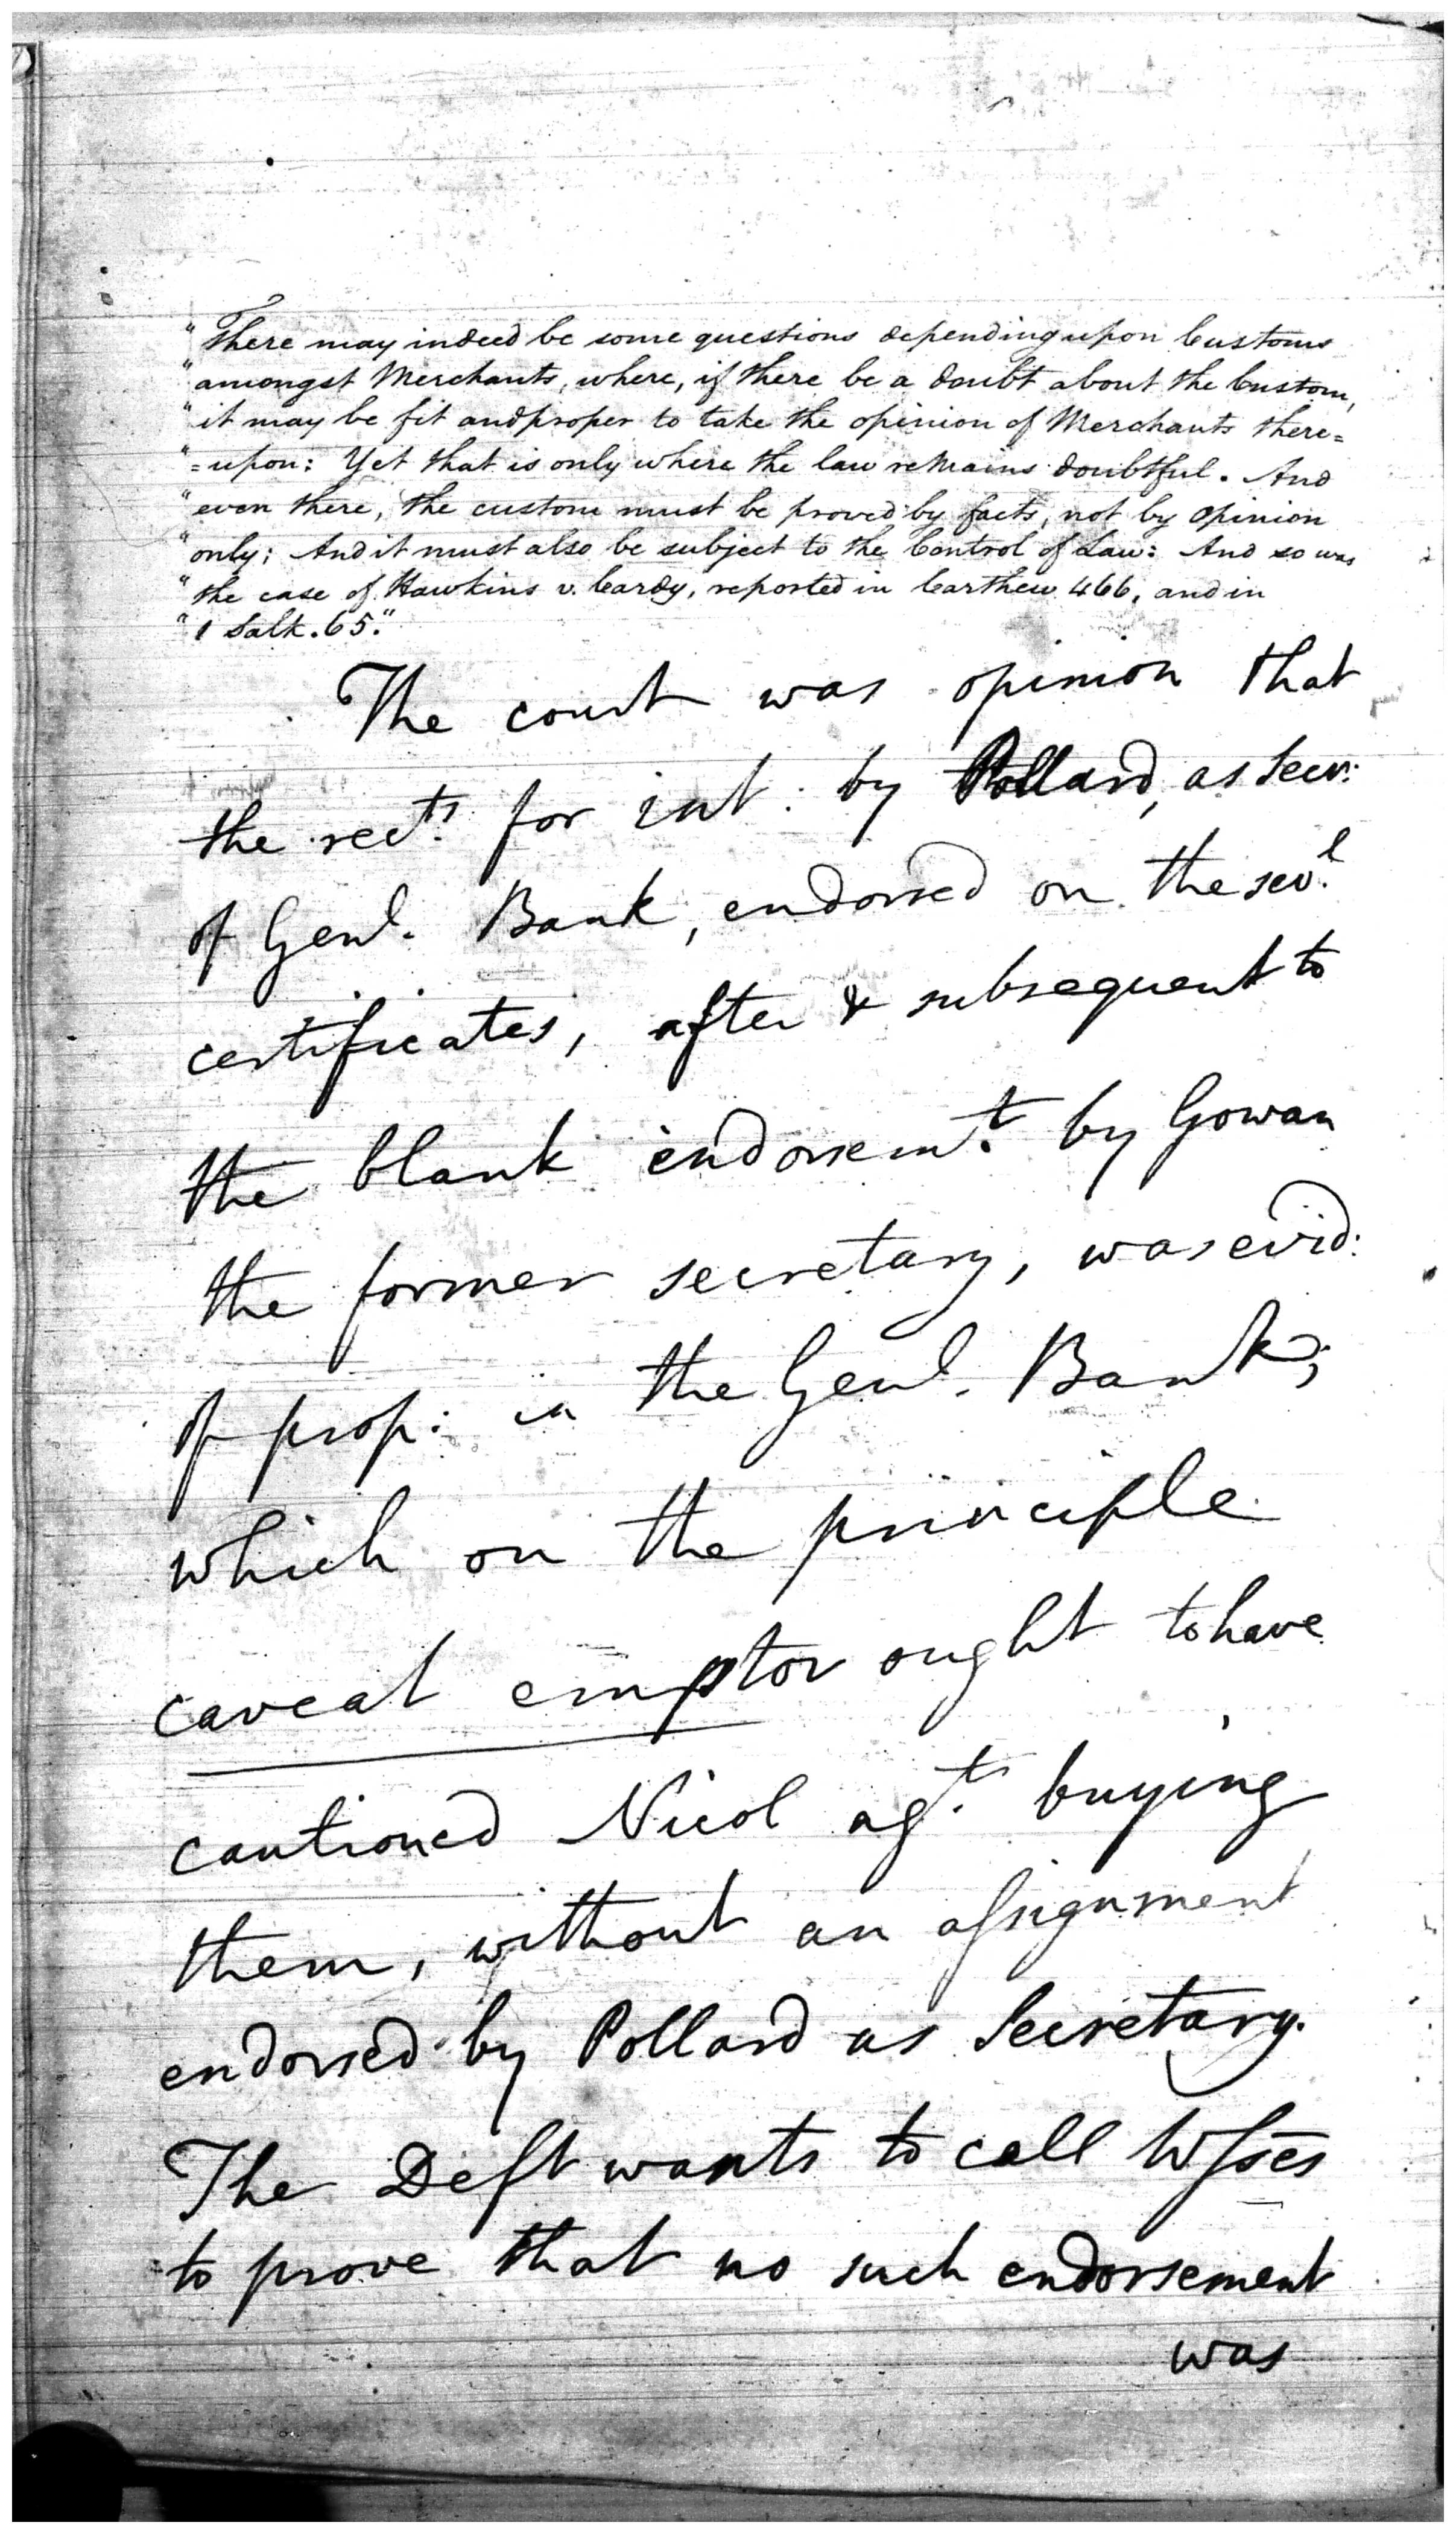 "There may indeed be some questions depending upon Customs
"amongst Merchants, where, if there be a doubt about the Custom,
"it may be fit and proper to take the opinion of Merchants there=
"=upon: Yet that is only where the law remains doubtful. And
"even there, the custom must be proved by facts, not by opinion
"only; And it must also be subject to the Control of Law: And so was
"the case of Hawkins v. Cardy, reported in Carthew 466, and in
"1 Salk. 65."
The court was opinion that
the rects. for int: by Pollard, as Secr:
of Genl. Bank, endorsed on the sevl.
certificates, after & subsequent to
the blank endorsemt. by Gowan
the former secretary, was evid:
of prop: in the Genl. Bank;
which on the principle
caveat emptor ought to have
cautioned Nicol agt. buying
them, without an assignment
endorsed by Pollard as Secretary.
The Deft wants to call Wsses
to prove that no such endorsement
was